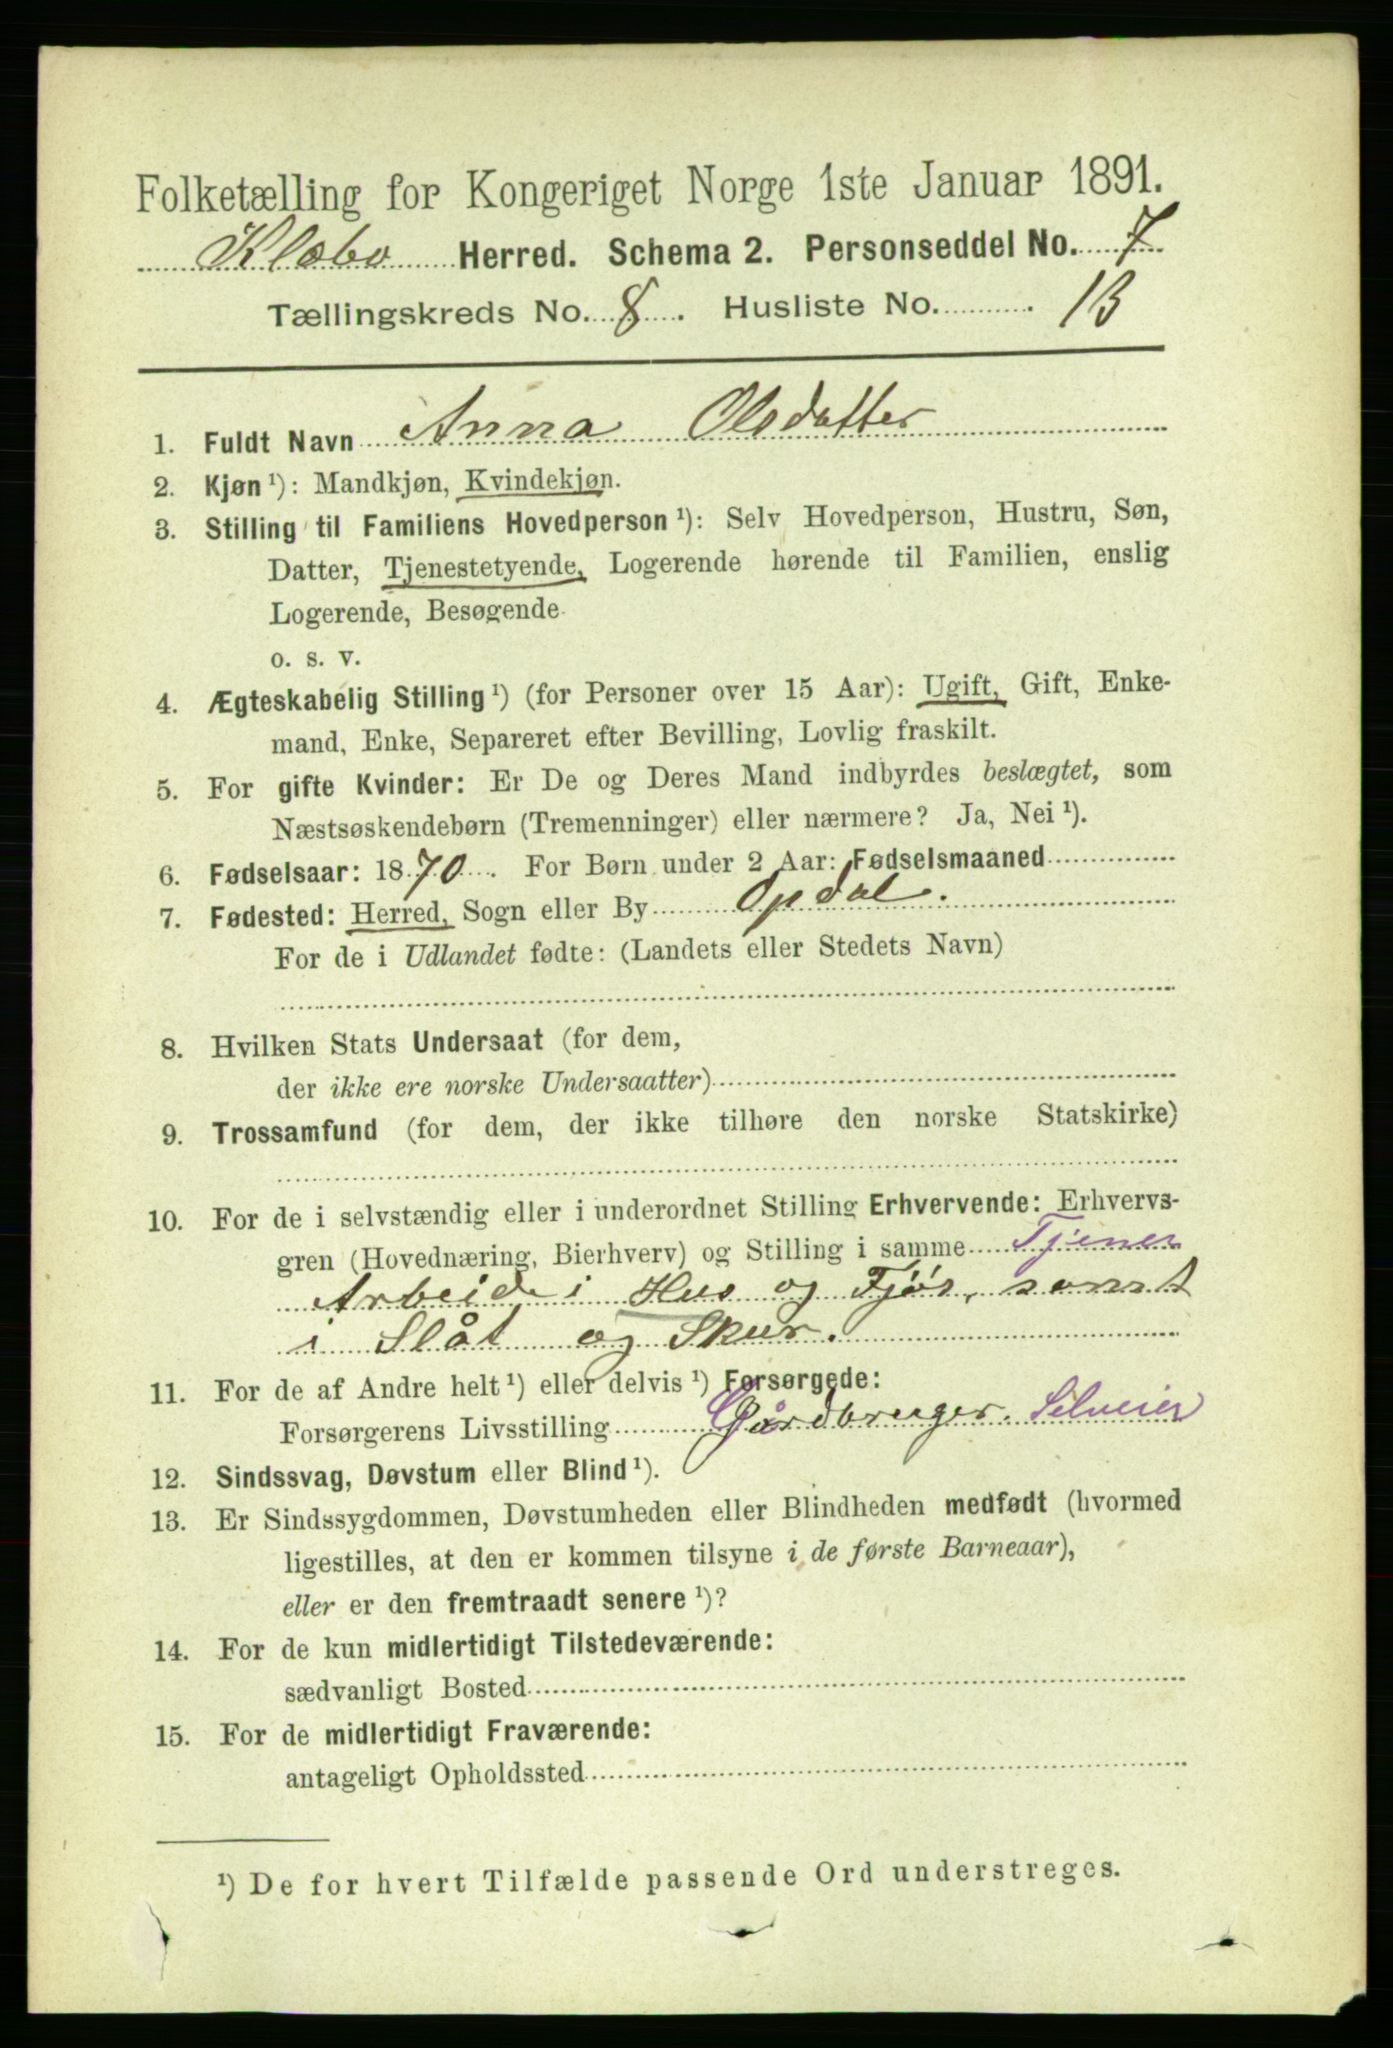 Folketælling for Kongeriget Norge 1ste Januar 1891.
Klæbo Herred. Schema 2. Personseddel No. 7
Tællingskreds No. 8. Husliste No. 13
1. Fuldt Navn Anna Olsdatter
2. Kjøn ¹): Mandkjøn, Kvindekjøn.
3. Stilling til Familiens Hovedperson ¹): Selv Hovedperson, Hustru, Søn,
Datter, Tjenestetyende, Logerende hørende til Familien, enslig
Logerende, Besøgende
o. s. v.
4. Ægteskabelig Stilling ¹) (for Personer over 15 Aar): Ugift, Gift, Enke-
mand, Enke, Separeret efter Bevilling, Lovlig fraskilt.
5. For gifte Kvinder: Er De og Deres Mand indbyrdes beslægtet, som
Næstsøskendebørn (Tremenninger) eller nærmere? Ja, Nei ¹).
6. Fødselsaar: 1870. For Børn under 2 Aar: Fødselsmaaned
7. Fødested: Herred, Sogn eller By Opdal.
For de i Udlandet fødte: (Landets eller Stedets Navn)
8. Hvilken Stats Undersaat (for dem,
der ikke ere norske Undersaatter)
9. Trossamfund (for dem, der ikke tilhøre den norske Statskirke)
10. For de i selvstændig eller i underordnet Stilling Erhvervende: Erhvervs-
gren (Hovednæring, Bierhverv) og Stilling i samme Tjener
Arbeide i Hus og Fjøs, samt
i Slåt og Skur.
11. For de af Andre helt ¹) eller delvis ¹) Forsørgede:
Forsørgerens Livsstilling Gårdbruger. Selveier
12. Sindssvag, Døvstum eller Blind ¹).
13. Er Sindssygdommen, Døvstumheden eller Blindheden medfødt (hvormed
ligestilles, at den er kommen tilsyne i de første Barneaar),
eller er den fremtraadt senere ¹)?
14. For de kun midlertidigt Tilstedeværende:
sædvanligt Bosted
15. For de midlertidigt Fraværende:
antageligt Opholdssted
¹) De for hvert Tilfælde passende Ord understreges.